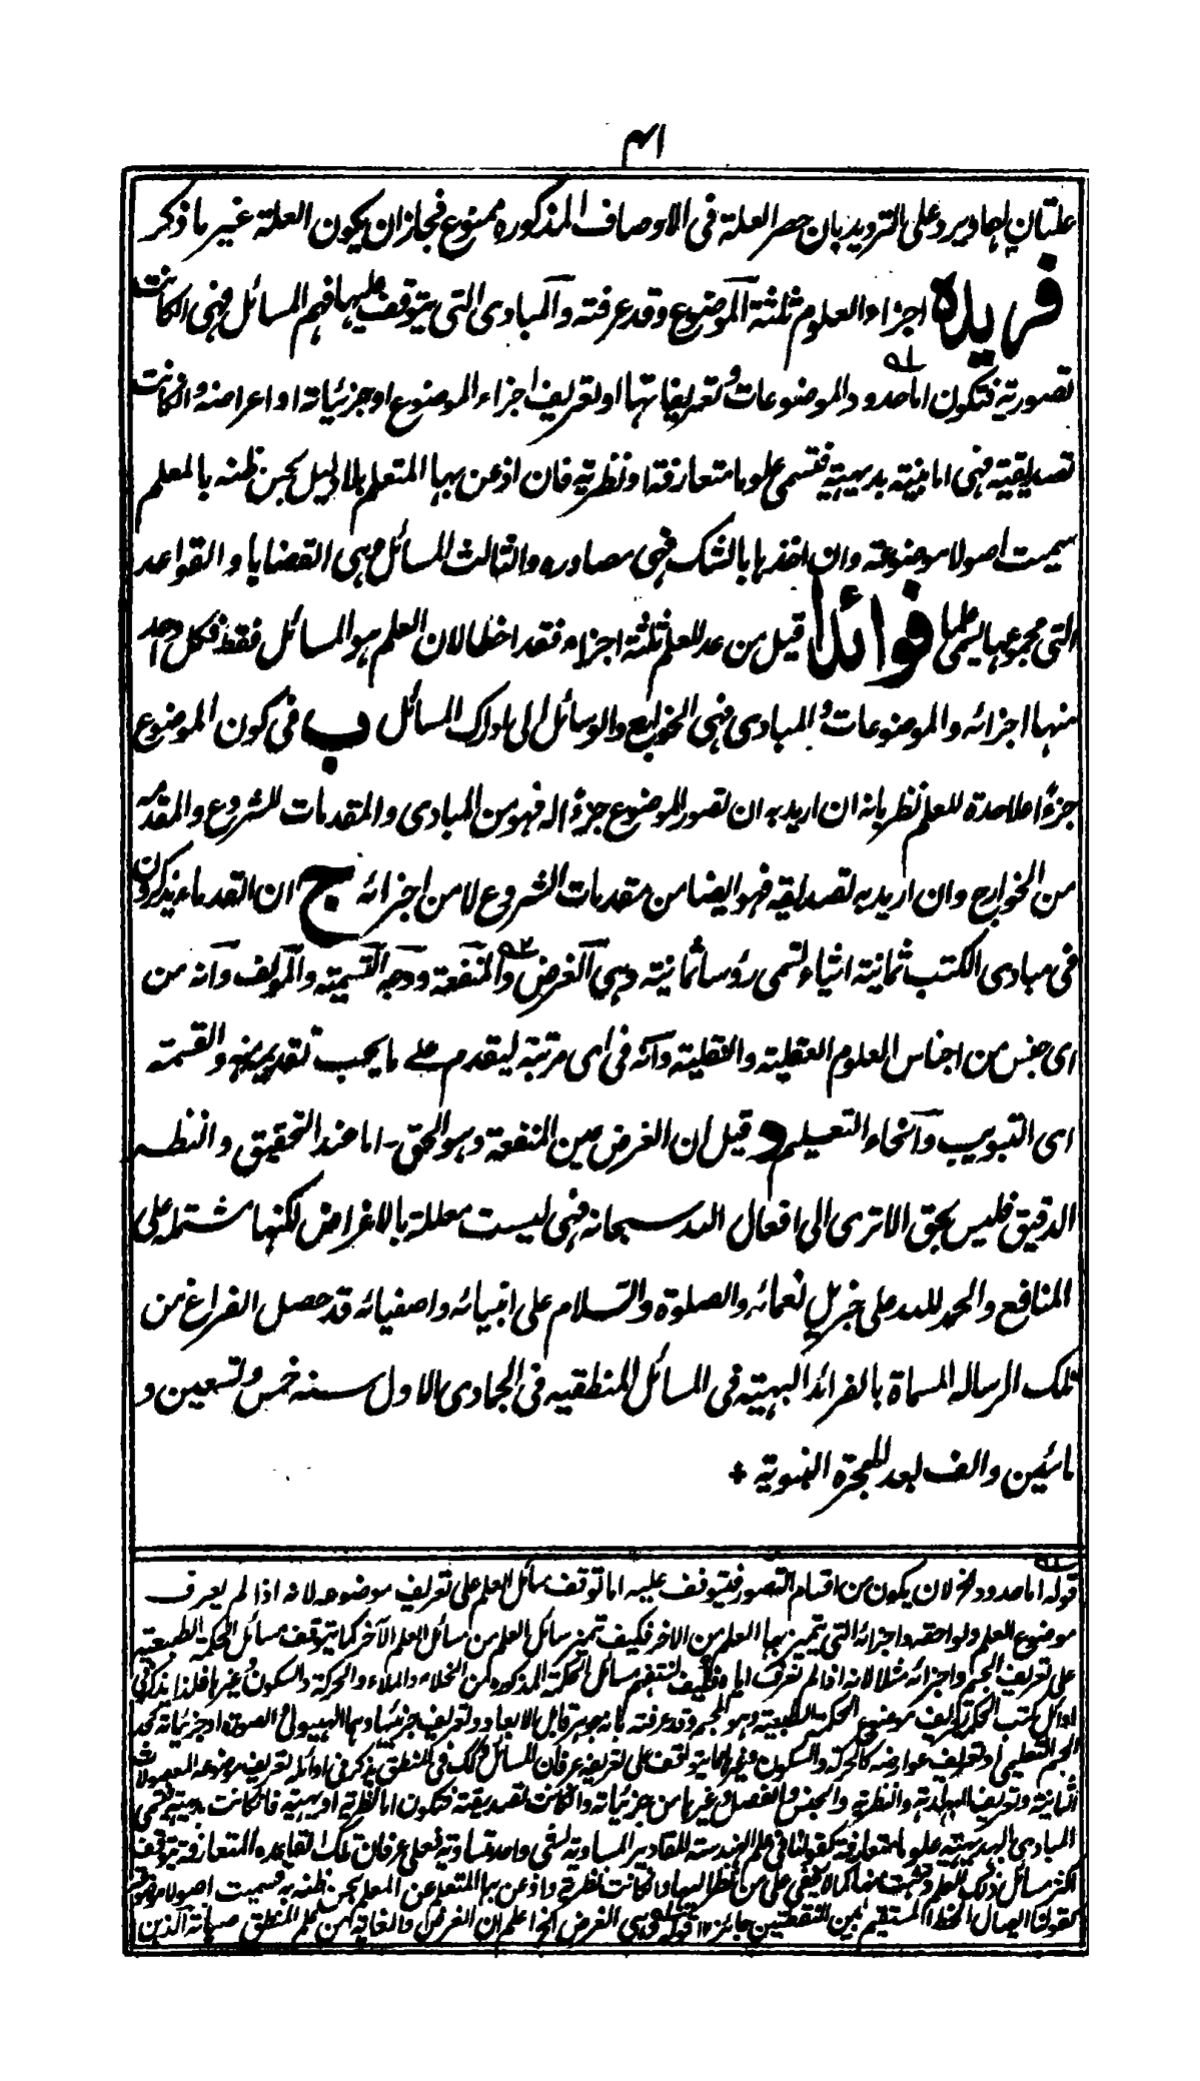 ٤١
علتان لها ويرد على الترديد بان حصر العلة فى الاوصاف المذكوره ممنوع فجاز ان يكون العلة غير ما ذكر
فريده اجزاء العلوم ثلثة الموضوع وقد عرفته والمبادى التى يتوقف عليها فهم المسائل فهى ان كانت
تصورية فتكون اما حدود الموضوعات وتعريفاتها او تعريف اجزاء الموضوع او جزئياته او اعراضه وان كانت
تصديقية فهى اما بينة بديهية فتسمى علوما متعارفة او نظرية فان اذعن بها المتعلم بلا دليل بحسن ظنه بالمعلم
سميت اصولا موضوعة وان اخذها بالشك فهى مصادره والثالث المسائل وهى القضايا والقواعد
التى مجموعها يسمى علما فوائد ا قيل من عد للعلم ثلثة اجزاء فقد اخطا لان العلم هو المسائل فقط فكل واحد
منها اجزائه والموضوعات والمبادى فهى الخوارج والوسائل الى ادراك المسائل ب فى كون الموضوع
جزءًا علاحدة للعلم نظر بانه ان اريد به ان تصور الموضوع جزءٌ له فهو من المبادى والمقدمات للشروع والمقدمة
من الخوارج وان اريد به تصديقه فهو ايضا من مقدمات الشروع لا من اجزائه ج ان القدماء يذكرون
فى مبادى الكتب ثمانية اشياء تسمى رؤسا ثمانية وهى الغرض والمنفعة ووجه التسمية والمؤلف وانه من
اى جنس من اجناس العلوم العقلية والنقلية وانه فى اى مرتبة ليقدم على ما يجب تقديمه منه والقسمة
اى التبويب وانحاء التعليم د قيل ان الغرض عين المنفعة وهو الحق - اما عند التحقيق والنظر
الدقيق فليس بحق الا ترى الى افعال الله سبحانه فهى ليست معللة بالاغراض لكنها مشتملة على
المنافع والحمد لله على جزيل نعمائه والصلوة والسلام على انبيائه واصفيائه قد حصل الفراغ من
تلك الرساله المسماة بالفرائد البهية فى المسائل المنطقيه فى الجمادى الاول سنه خمس وتسعين و
مائتين والف بعد الهجرة النبوية +
قوله اما حدود الخ لان يكون من اقسام التصور فيتوقف عليه اما توقف مسائل العلم على تعريف موضوعه لانه اذا لم يعرف
موضوع العلم ولواحقه واجزائه التى يتميز بها العلم من الاخر فكيف تميز مسائل العلم من مسائل العلم الآخر كما يتوقف مسائل الحكمة الطبيعية
على تعريف الجسم واجزائه مثلا لانه اذا لم تعرف اياه فكيف تفهم مسائل الحكمة المذكوره من الخلاء والملاء والحركة والسكون وغيرها فلذا يذكر فى
اوائل كتب الحكمة تعريف موضوع الحكمة الطبيعية وهو الجسم وقد عرفته بانه جوهر قابل الابعاد وتعريف جزئيها وهما الهيولى والصورة او جزئياته كحد
الجسم التعليمى او تعريف عوارضه كالحركة والسكون وغيرهما يتوقف على تعريفه عرفان المسائل وكذلك فى المنطق يذكر فى اوائله تعريف موضوعه المعقولات
الثانية وتعريف البداهة والنظرية والجنس والفصل وغيرها من جزئياته وان كانت تصديقية فتكون اما نظرية او بديهية فان كانت بديهية تسمى
المبادى البديهية علوما متعارفة كقولنا فى علم الهندسة المقادير المساوية لشئ واحد متساوية فعلى عرفان تلك القاعده المتعارفة يتوقف
اكثر مسائل ذلك العلم وتثبت منها كما لا يخفى على من نظر اليها وان كانت نظرية واذعن بها المتعلم عن المعلم بحسن ظنه به فسميت اصولا موضوعة
كقولنا ايصال الخط المستقيم بين النقطتين جائز ١٢ قوله وهى الغرض الخ اعلم ان الغرض والغاية من علم المنطق صيانة الذهن